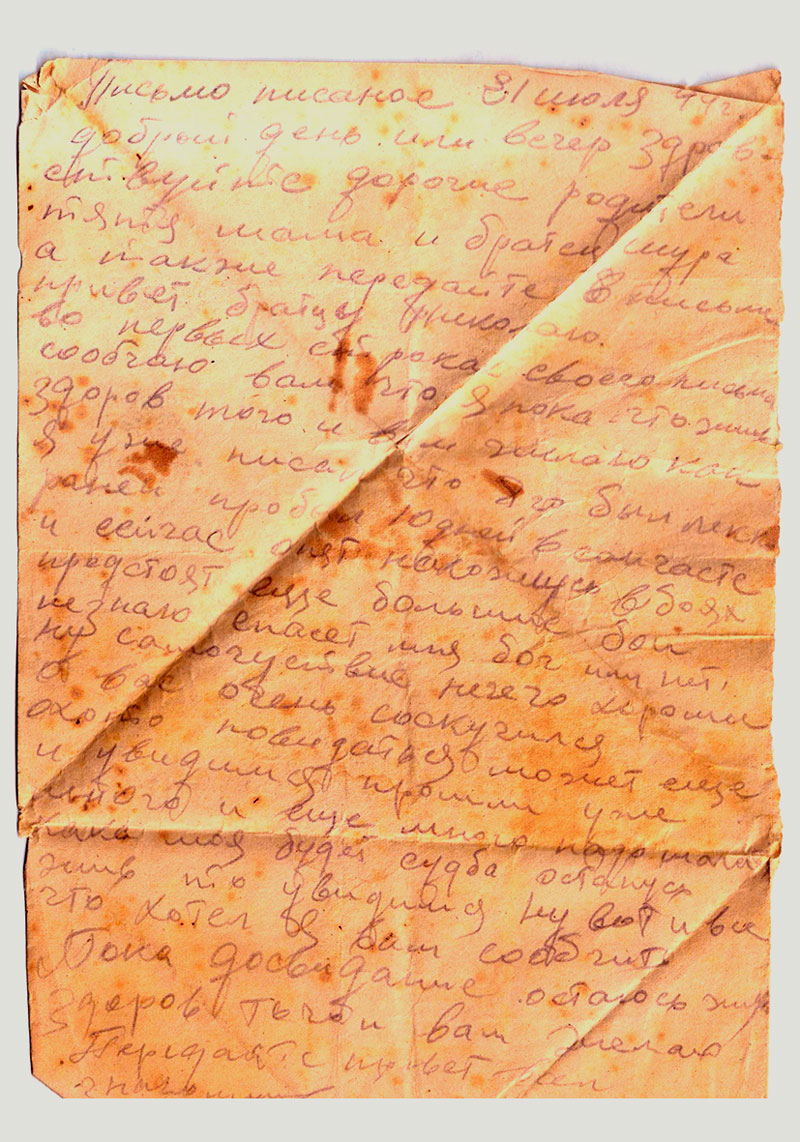 Письмо писаное 31 июля 44 г.
добрый день или вечер здрав-
ствуйте дорогие родители
тятя мама и братец шура
а также передайте в письме
привет братцу Николаю.
во первых строках своего письма
сообчаю вам что я пока что жив
здоров того и вам желаю как
я уже писал что я был легко
ранен пробыл 10 дней в санчасте
и сейчас опят нахожусь в боях
предстоят еще большие бои
незнаю спасет мня бог или нет,
ну самочуствие нечего хороши
о вас очень соскучился
охото повидаться может еще
и увидимся прошли уже
много и еще много надо
кака моя будет судба останус
жив то увидимся ну вот и все
что хотел я вам сообчить
Пока досвидание остаюсь жив
здоров вам желаю
Передайте привет всем